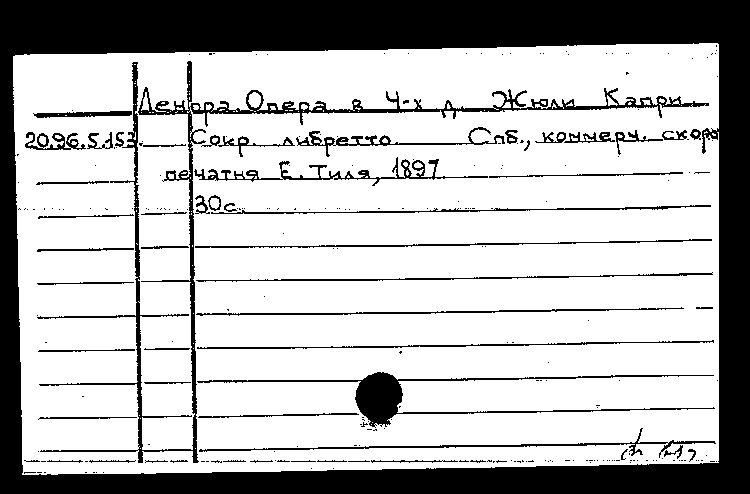 Ленора. Опера в 4-х д. Жюли Капри.
20.96.5.153. Сокр. либретто. Спб., коммерч. скоро
печатня Е. Тиля, 1897.
30с.